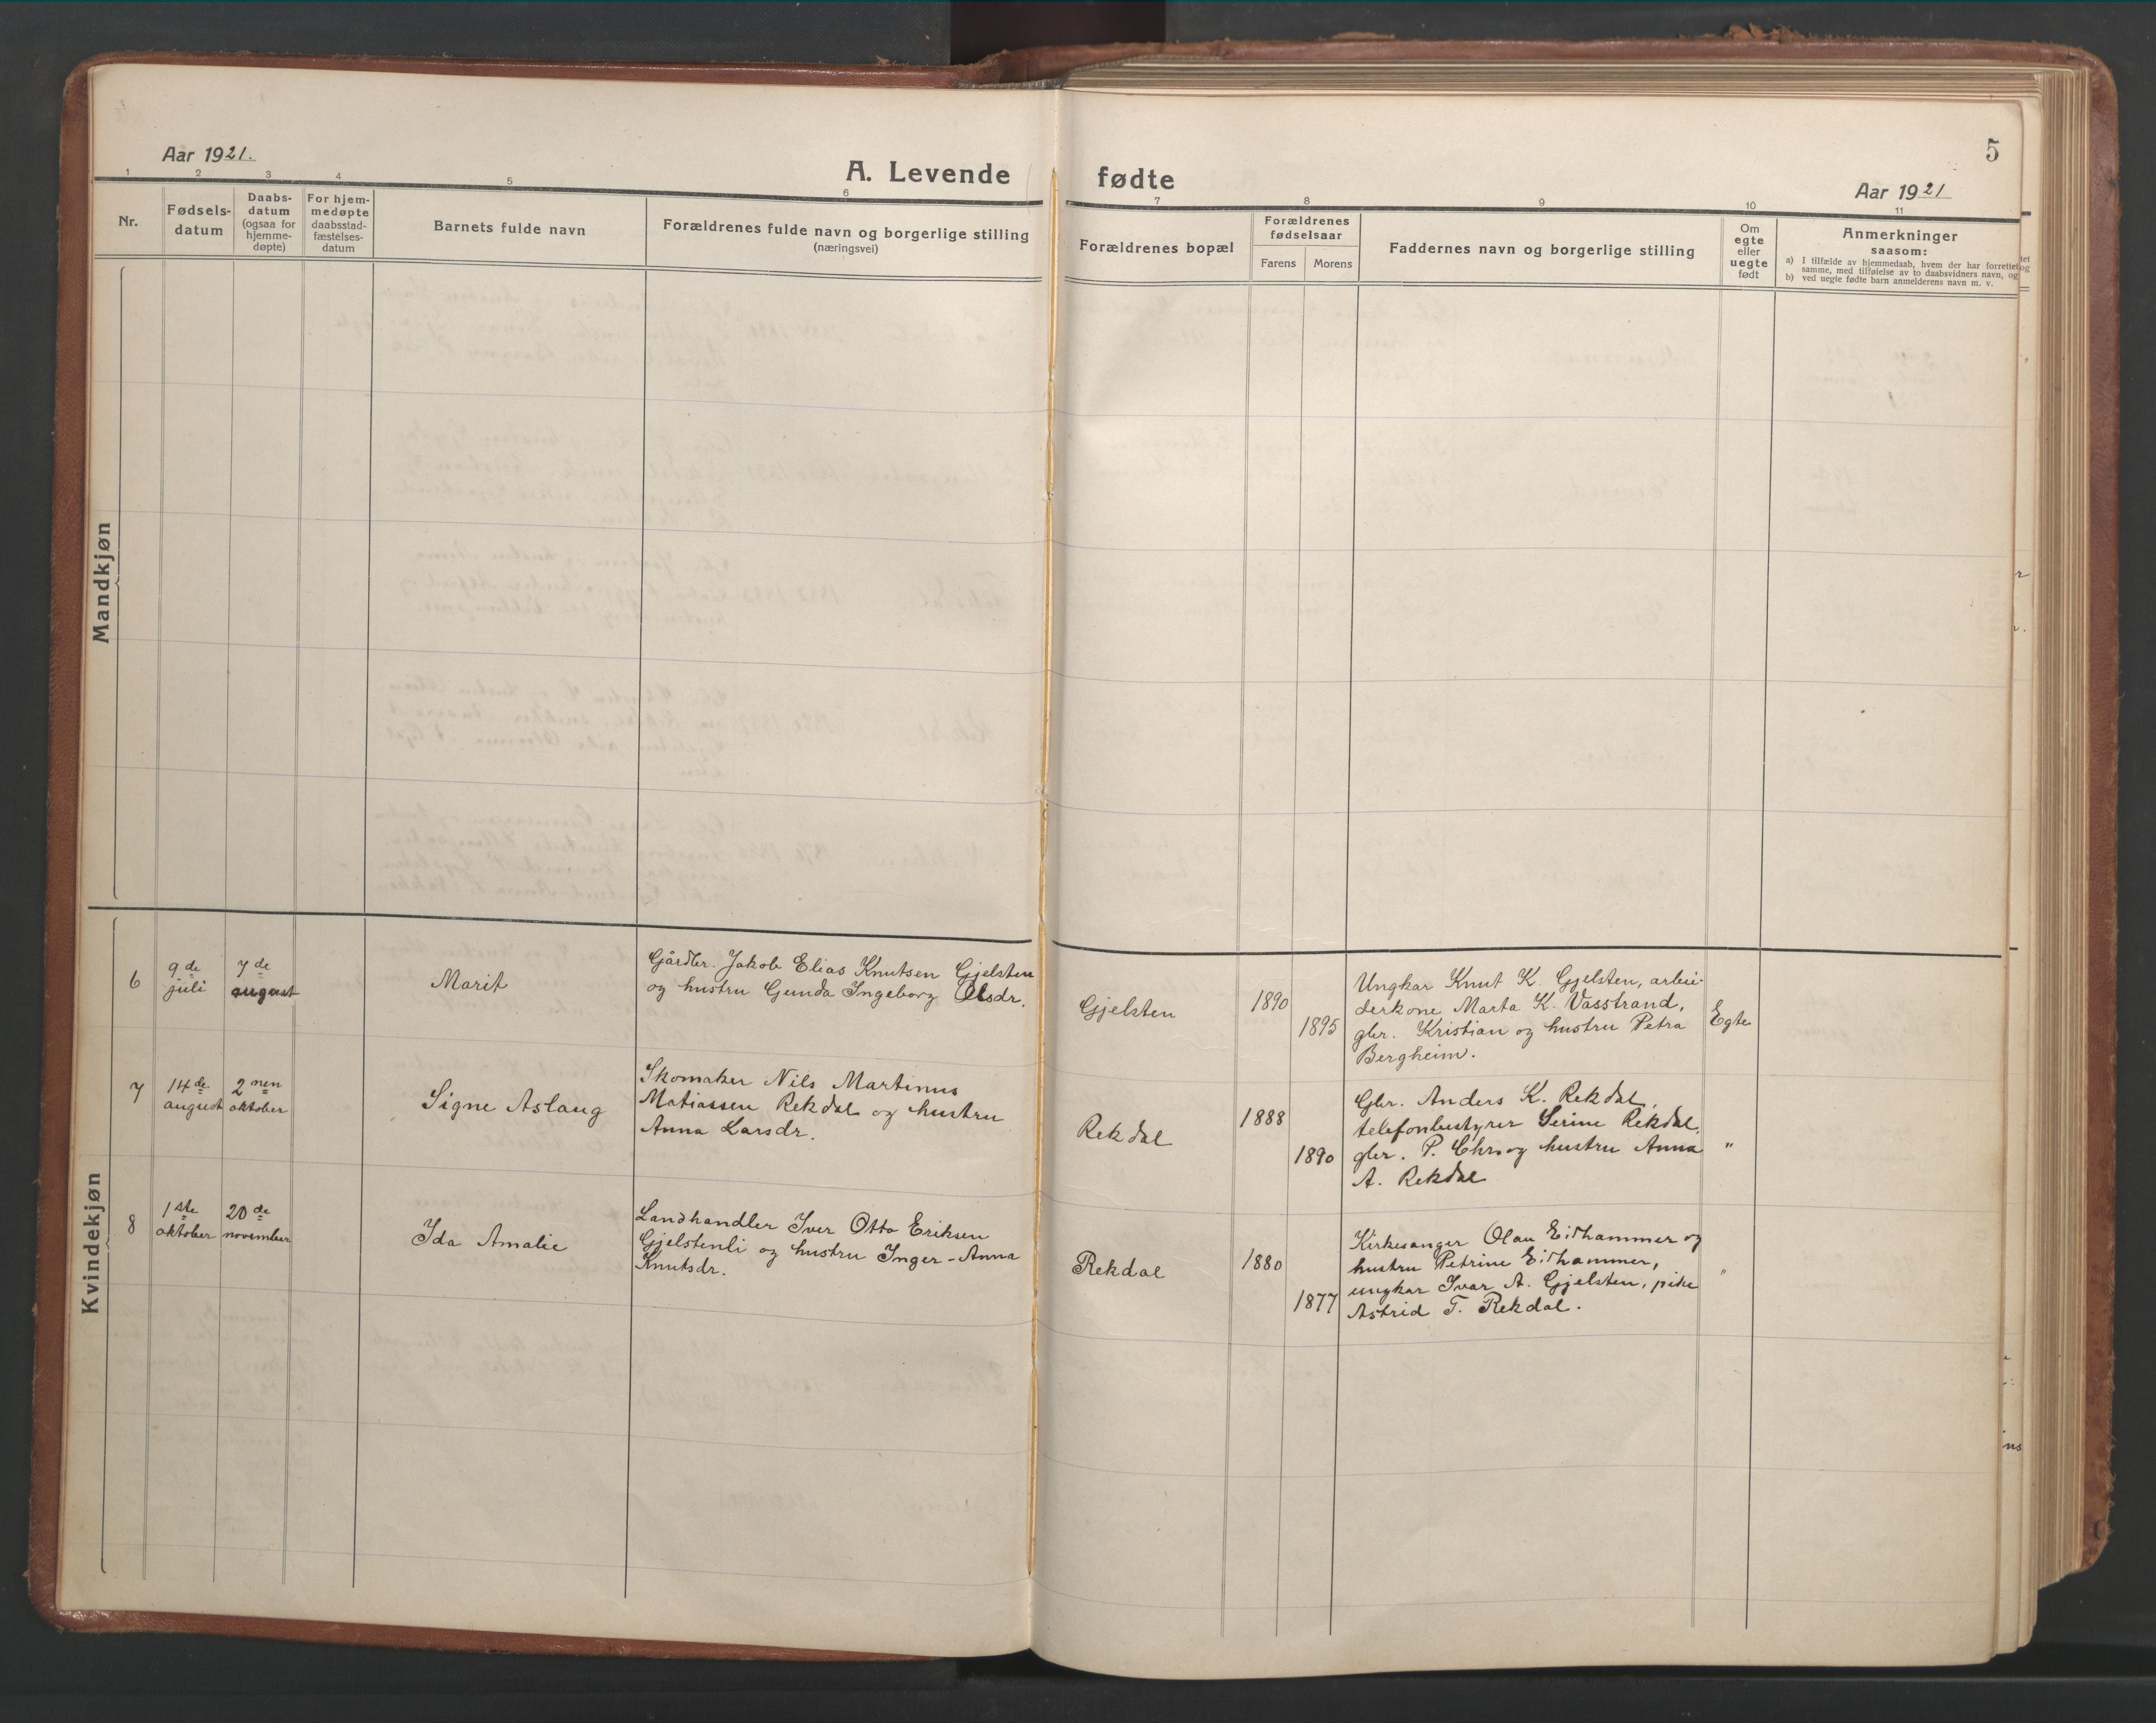 5
Aar 1921.
A. Levende fødte
Aar 1921
1 2 3 4 5 6 7 8 9 10 11
Nr.
Fødsels-
datum
Daabs-
datum
(ogsaa for
hjemme-
døpte)
For hjem-
medøpte
daabsstad-
fæstelses-
datum
Barnets fulde navn
Forældrenes fulde navn og borgerlige stilling
(næringsvei)
Forældrenes bopæl
Forældrenes
fødselsaar
Farens Morens
Faddernes navn og borgerlige stilling
Om
egte
eller
uegte
født
Anmerkninger
saasom:
a) I tilfælde av hjemmedaab, hvem der har forrettet
samme, med tilføielse av to daabsvidners navn, og
b) ved uegte fødte barn anmelderens navn m. v.
Mandkjøn
Kvindekjøn
6
9de
juli
7de
august
Marit
Gårdbr. Jakob Elias Knutsen Gjelsten
og hustru Gunda Ingeborg Olsdr.
Gjelsten
1890
1895
Ungkar Knut K. Gjelsten, arbei-
derkone Marta K. Vasstrand,
gbr. Kristian og hustru Petra
Bergheim.
Egte
7
14de
august
2nen
oktober
Signe Aslaug
Skomaker Nils Martinus
Matiassen Rekdal og hustru
Anna Larsdr.
Rekdal
1888
1890
Gbr. Anders K. Rekdal,
telefonbestyrer Serine Rekdal,
gbr. P. Chr. og hustru Anna
A. Rekdal
"
8
1ste
oktober
20de
november
Ida Amalie
Landhandler Iver Otto Eriksen
Gjelstenli og hustru Inger-Anna
Knutsdr.
Rekdal
1880
1877
Kirkesanger Olav Eidhammer og
hustru Petrine Eidhammer,
ungkar Ivar A. Gjelsten, pike
Astrid T. Rekdal.
"